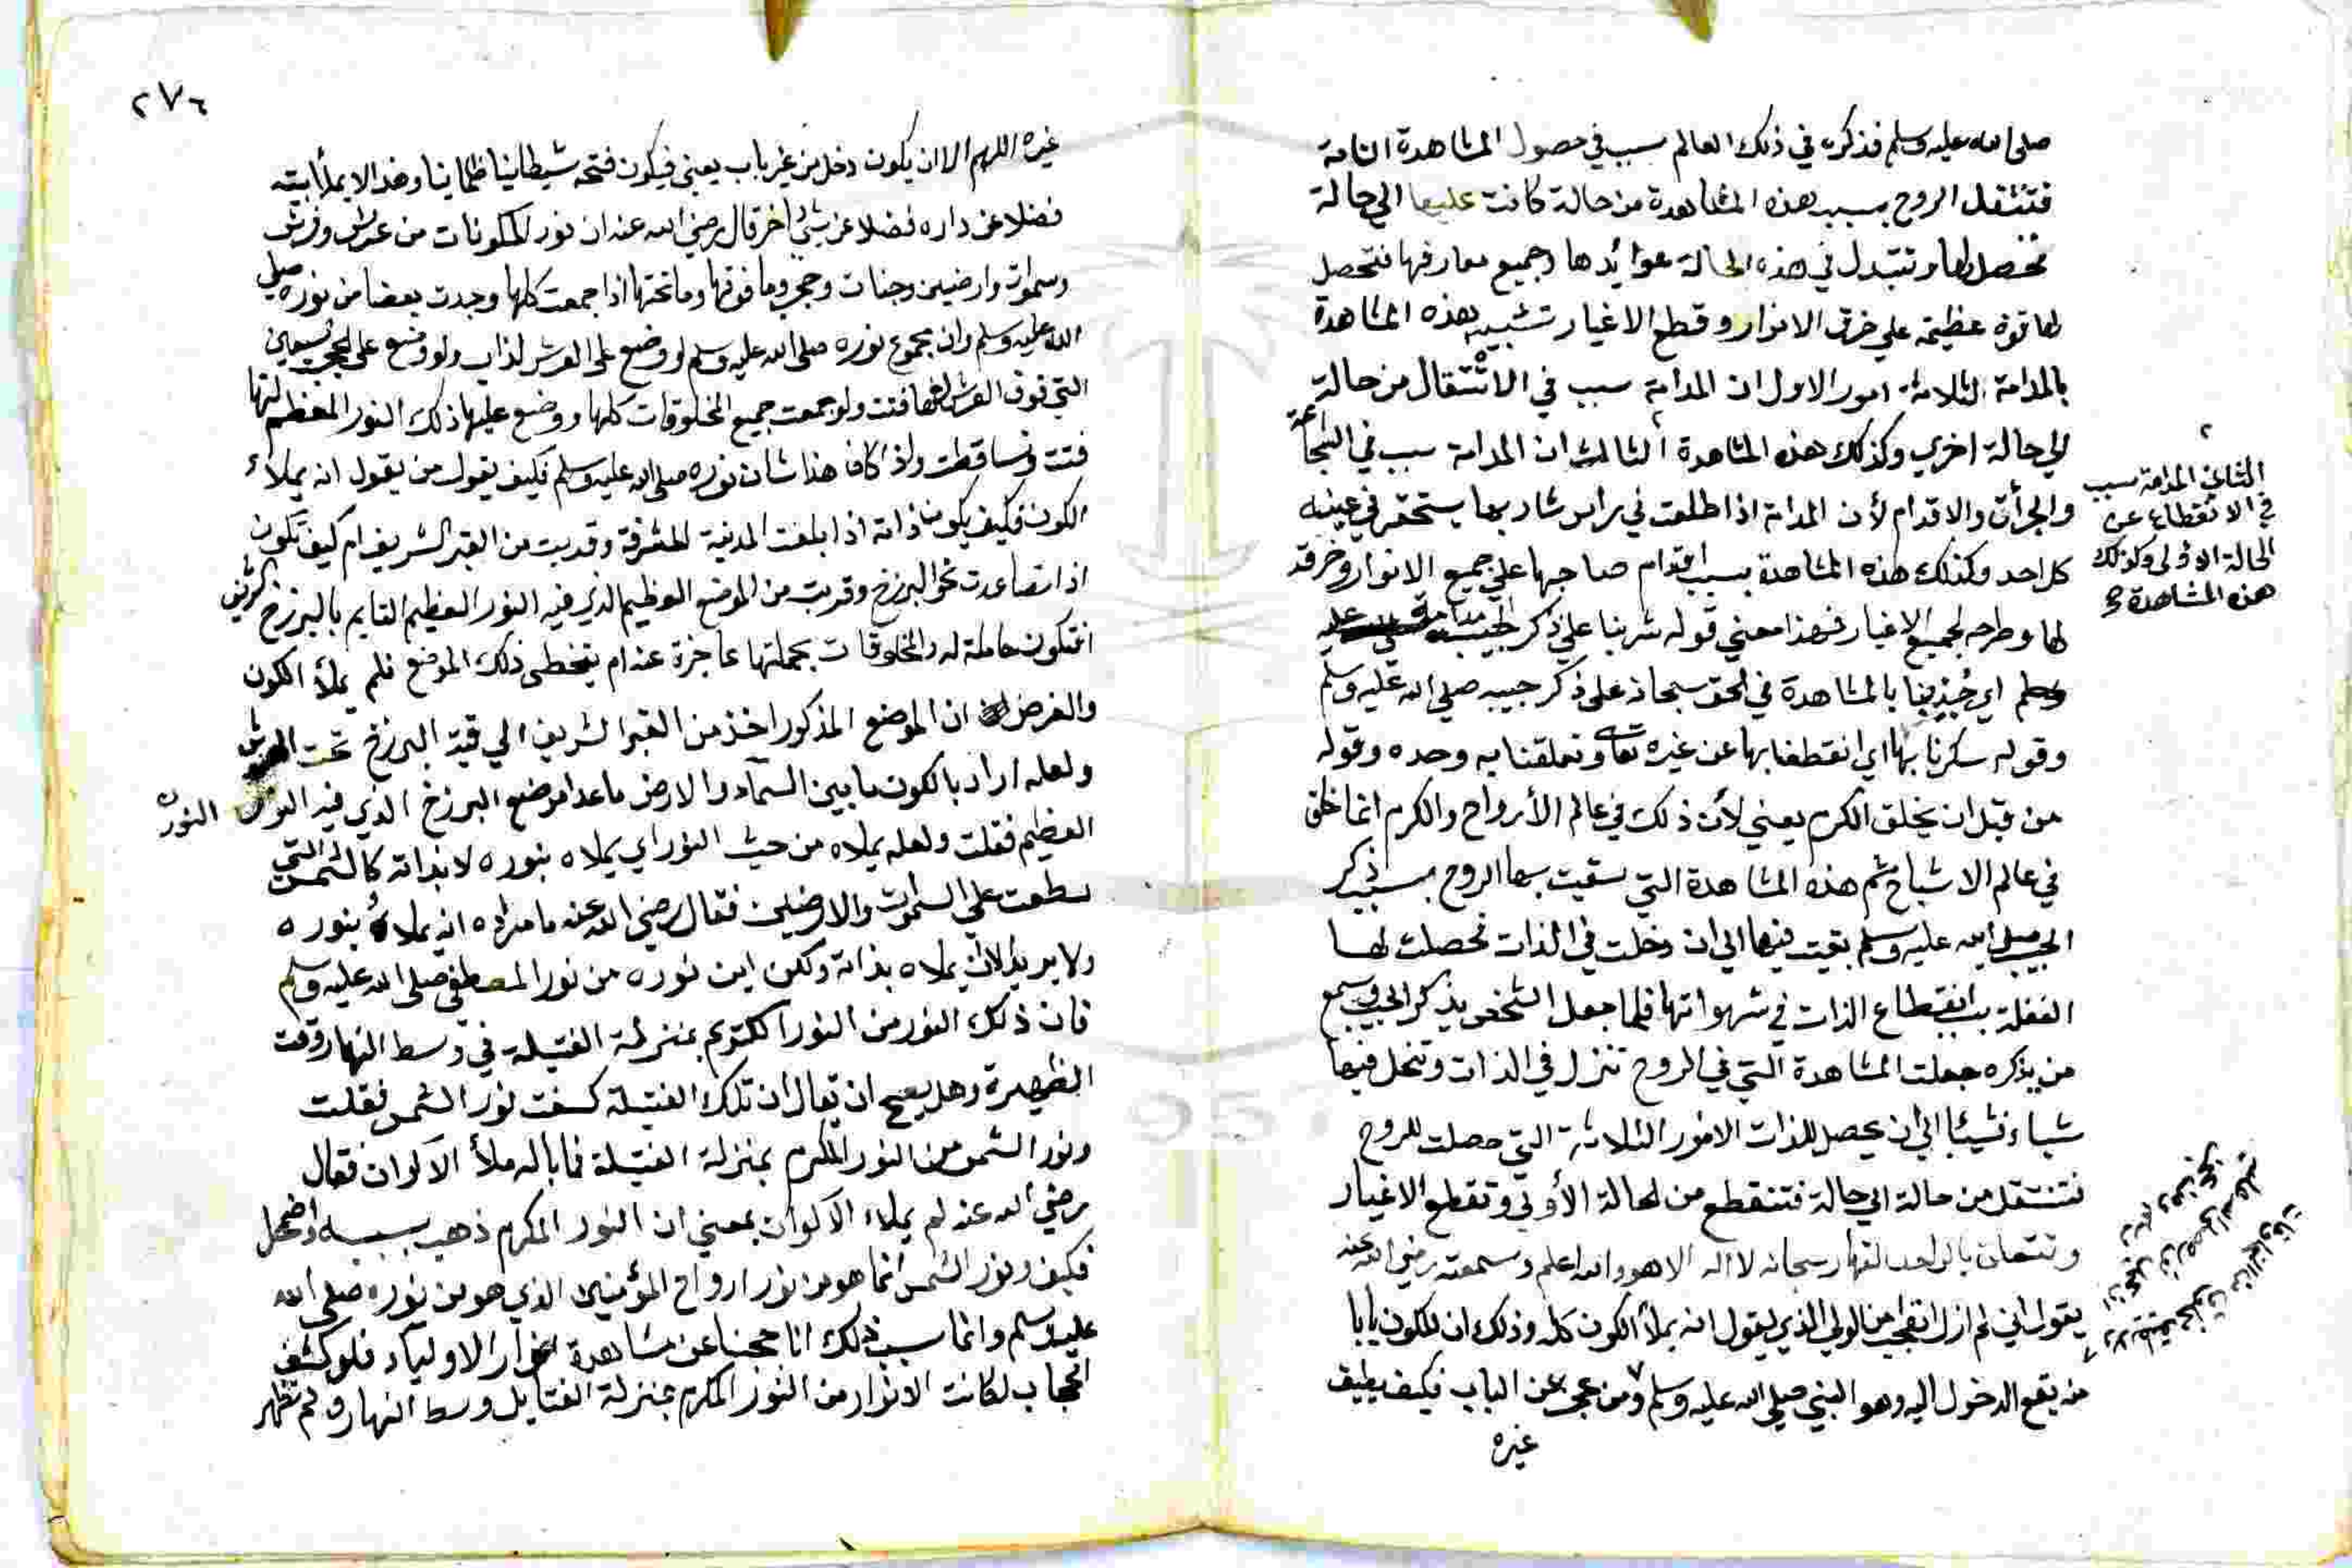 صلى الله عليه وسلم فذكره في ذلك العالم سبب في حصول المشاهدة التامة
فتنتقل الروح بسبب هذه المشاهدة من حالة كانت عليها الي حالة
تحصل لها وتتبدل في هذه الحالة عوائدها وجميع معارفها فتحصل
لها قوة عظيمة علي خرق الانوار وقطع الاغيار تشبيه هذه المشاهدة
بالمدامة لثلاثة امور الاول ان المدامة سبب في الانتقال من حالة
الي حالة اخري وكذلك هذه المشاهدة الثالث ان المدامة سبب في الشجاعة
الثاني المدامة سبب
في الانقطاع عن
الحالة الاولى وكذلك
هذه المشاهدة صح
والجرأة والاقدام لأن المدامة اذا طلعت في راس شاربها يستحقر في عينه
كل احد وكذلك هذه المشاهدة بسبب اقدام صاحبها علي جميع الانوار وخرقه
لها وطرحه لجميع الاغيار فهذا معني قوله شربنا علي ذكر الحبيب مدامة
اي بالمشاهدة في الحق سبحانه على ذكر حبيبه صلي الله عليه وسلم
وقوله سكرنا بها اي انقطعنا بها عن غيره تعالى وتعلقنا به وحده وقوله
من قبل ان يخلق الكرم يعني لأن ذلك في عالم الأرواح والكرم انما خلق
في عالم الاشباح ثم هذه المشاهدة التي سقيت بها الروح بسبب ذكر
الحبيب صلي الله عليه وسلم بقيت فيها الي ان دخلت في الذات فحصلت لها
الغفلة بانقطاع الذات في شهواتها فلما جعل الشخص يذكر الحبيب ويسمع
من يذكره جعلت المشاهدة التي في الروح تنزل في الذات وتنحل فيها
شيأ فشيئا الي ان يحصل للذات الامور الثلاثة التي حصلت للروح
فتنتقل من حالة الي حالة فتنقطع من الحالة الأولي وتقطع الاغيار
وتتعلق بالواحد القهار سبحانه لا اله الا هو والله اعلم وسمعته رضي الله عنه
يقول اني لم ازل اتعجب من الولي الذي يقول انه يملأ الكون كله وذلك ان للكون بابا
منه يقع الدخول اليه وهو النبي صلي الله عليه وسلم ومن عجز عن الباب فكيف يطيق
غيره
٢٧٦
غيره اللهم الا ان يكون دخل من غير باب يعني فيكون فتحه شيطانيا ظلمانيا وهذا لا يملأ بيته
فضلا عن داره فضلا عن شيء اخر قال رضي الله عنه ان نور المكونات من عرش وفرش
وسموات وارضين وجنات وحجب وما فوقها وما تحتها اذا جمعت كلها وجدت بعضا من نوره صلي
الله عليه وسلم وان مجموع نوره صلى الله عليه وسلم لو وضع على العرش لذاب ولو وضع على الحجب السبعين
التي فوق العرش لتهافتت ولو جمعت جميع المخلوقات كلها ووضع عليها ذلك النور العظيم لتها
فتت وتساقطت واذا كان هذا شان نوره صلى الله عليه وسلم فكيف يقول من يقول انه يملاء
الكون فكيف يكون ذاته اذا بلغت المدينة المشرفة وقربت من القبر الشريف ام كيف تكون
اذا تصاعدت نحو البرزخ وقربت من الموضع العظيم الذي فيه النور العظيم القايم بالبرزخ
افتكون حاملة له والمخلوقات بجملتها عاجزة عنه ام يتخطى ذلك الموضع فلم يملأ الكون
والغرض ان الموضع المذكور اخذ من القبر الشريف الي قبة البرزخ تحت العرش
ولعله اراد بالكون ما بين السماء والارض ما عدا موضع البرزخ الذي فيه النور النور
العظيم فقلت ولعله يملاه من حيث النور اي يملاه بنوره لا بذاته كالشمس التي
سطعت علي السموات والارضين فقال رضي الله عنه ما مراده انه يملاه بنوره
ولا يريد لان يملاه بذاته ولكن اين نوره من نور المصطفى صلى الله عليه وسلم
فان ذلك النور من النور المكرم بمنزلة الفتيلة في وسط النهار وقت
الظهيرة وهل يصح ان يقال ان تلك الفتيلة كسفت نور الشمس فقلت
ونور الشمس من النور المكرم بمنزلة الفتيلة فما باله ملأ الاكوان فقال
رضي الله عنه لم يملاء الاكوان بمعني ان النور المكرم ذهب بسببه واضمحل
فكيف ونور الشمس انما هو من نور ارواح المؤمنين الذي هو من نوره صلى الله
عليه وسلم وانما سبب ذلك انا حجبنا عن مشاهدة انوار الاولياء فلو كشف
الحجاب لكانت الانوار من النور المكرم بمنزلة الفتايل وسط النهار ولم تظهر